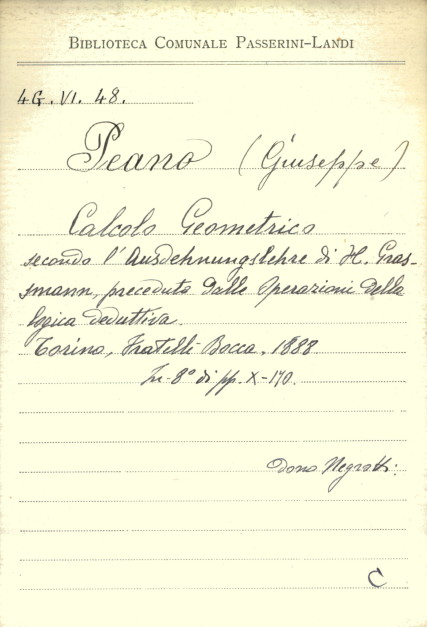 BIBLIOTECA COMUNALE PASSERINI-LANDI
4G. VI. 48.
Peano (Giuseppe)
Calcolo Geometrico
secondo l'Ausdehnungslehre di H. Gras-
smann, preceduto dalle Operazioni della
logica deduttiva.
Torino, Fratelli Bocca, 1888
In-8° di pp. X-170.
Dono Negrotti.
C